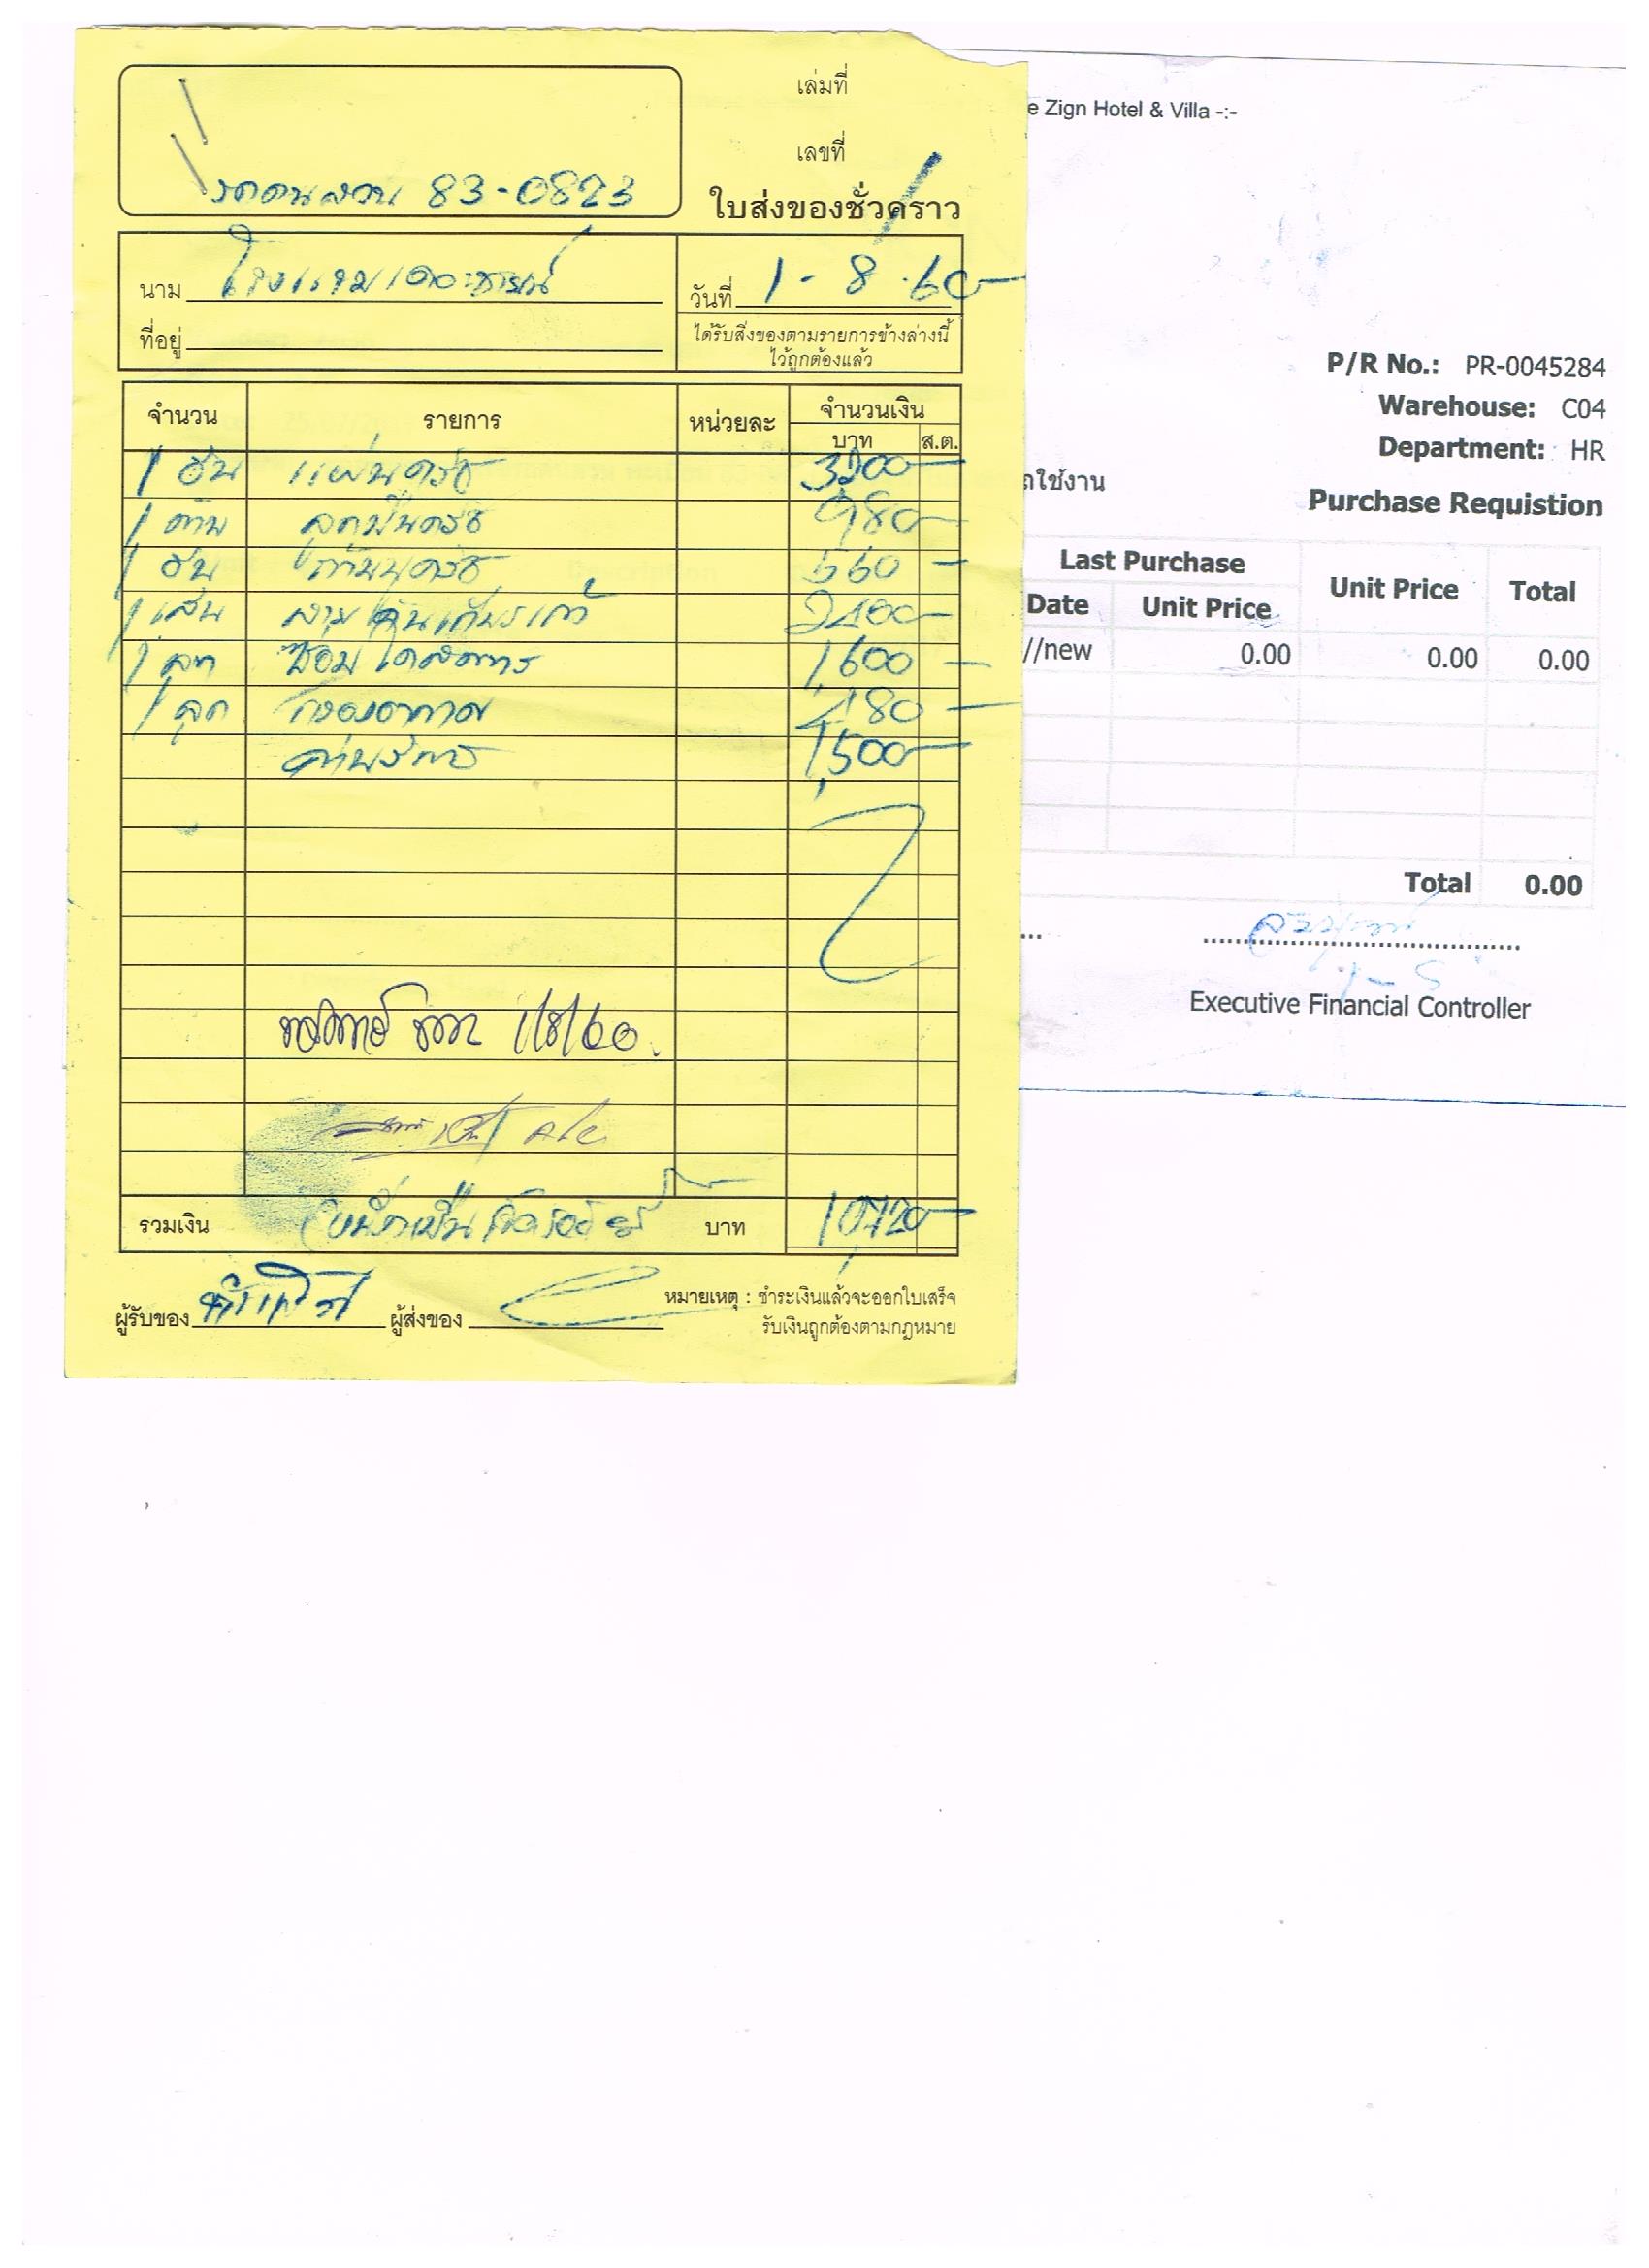 เล่มที่
เลขที่
รถคนสวน 83-0823
ใบส่งของชั่วคราว
นาม โรงแรมเดอะซายน์
วันที่ 1-8-60
ที่อยู่
ได้รับสิ่งของตามรายการข้างล่างนี้
ไว้ถูกต้องแล้ว
จำนวน รายการ หน่วยละ จำนวนเงิน
บาท ส.ต.
1 อัน แผ่นครัช 3200-
1 ตับ ลูกปืนครัช 980-
1 อัน ก้ามปูครัช 560-
1 เส้น สาย คันเกียร์เก่า 2400-
1 ลูก ซ่อม ไดสตาร์ท 1,600-
1 ลูก กรองอากาศ 480-
ค่าบริการ 1,500-
1/8/60.
รวมเงิน บาท 10,720-
ผู้รับของ ผู้ส่งของ
หมายเหตุ : ชำระเงินแล้วจะออกใบเสร็จ
รับเงินถูกต้องตามกฎหมาย
e Zign Hotel & Villa -:-
P/R No.: PR-0045284
Warehouse: C04
Department: HR
ถใช้งาน
Purchase Requistion
Last Purchase Unit Price Total
Date Unit Price
//new 0.00 0.00 0.00
Total 0.00
Executive Financial Controller